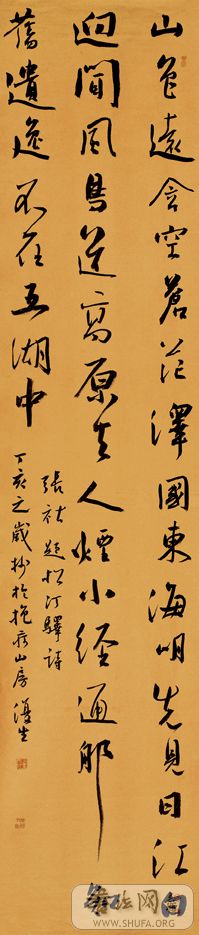 山色遠含空蒼茫澤國東海明先見日江白
迥聞風鳥道高原去人煙小徑通那知
舊遺逸不在五湖中
張祜題松汀驛詩
丁亥之歲抄於抱山房 生
书法网
WWW.SHUFA.ORG